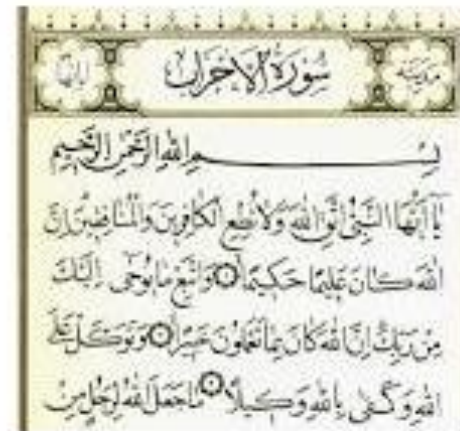 سورة الأحزاب
مدنية
بسم الله الرحمن الرحيم
يا أيها النبي اتق الله ولا تطع الكافرين والمنافقين إن
الله كان عليما حكيما ۝ واتبع ما يوحى إليك
من ربك إن الله كان بما تعملون خبيرا ۝ وتوكل على
الله وكفى بالله وكيلا ۝ ما جعل الله لرجل من